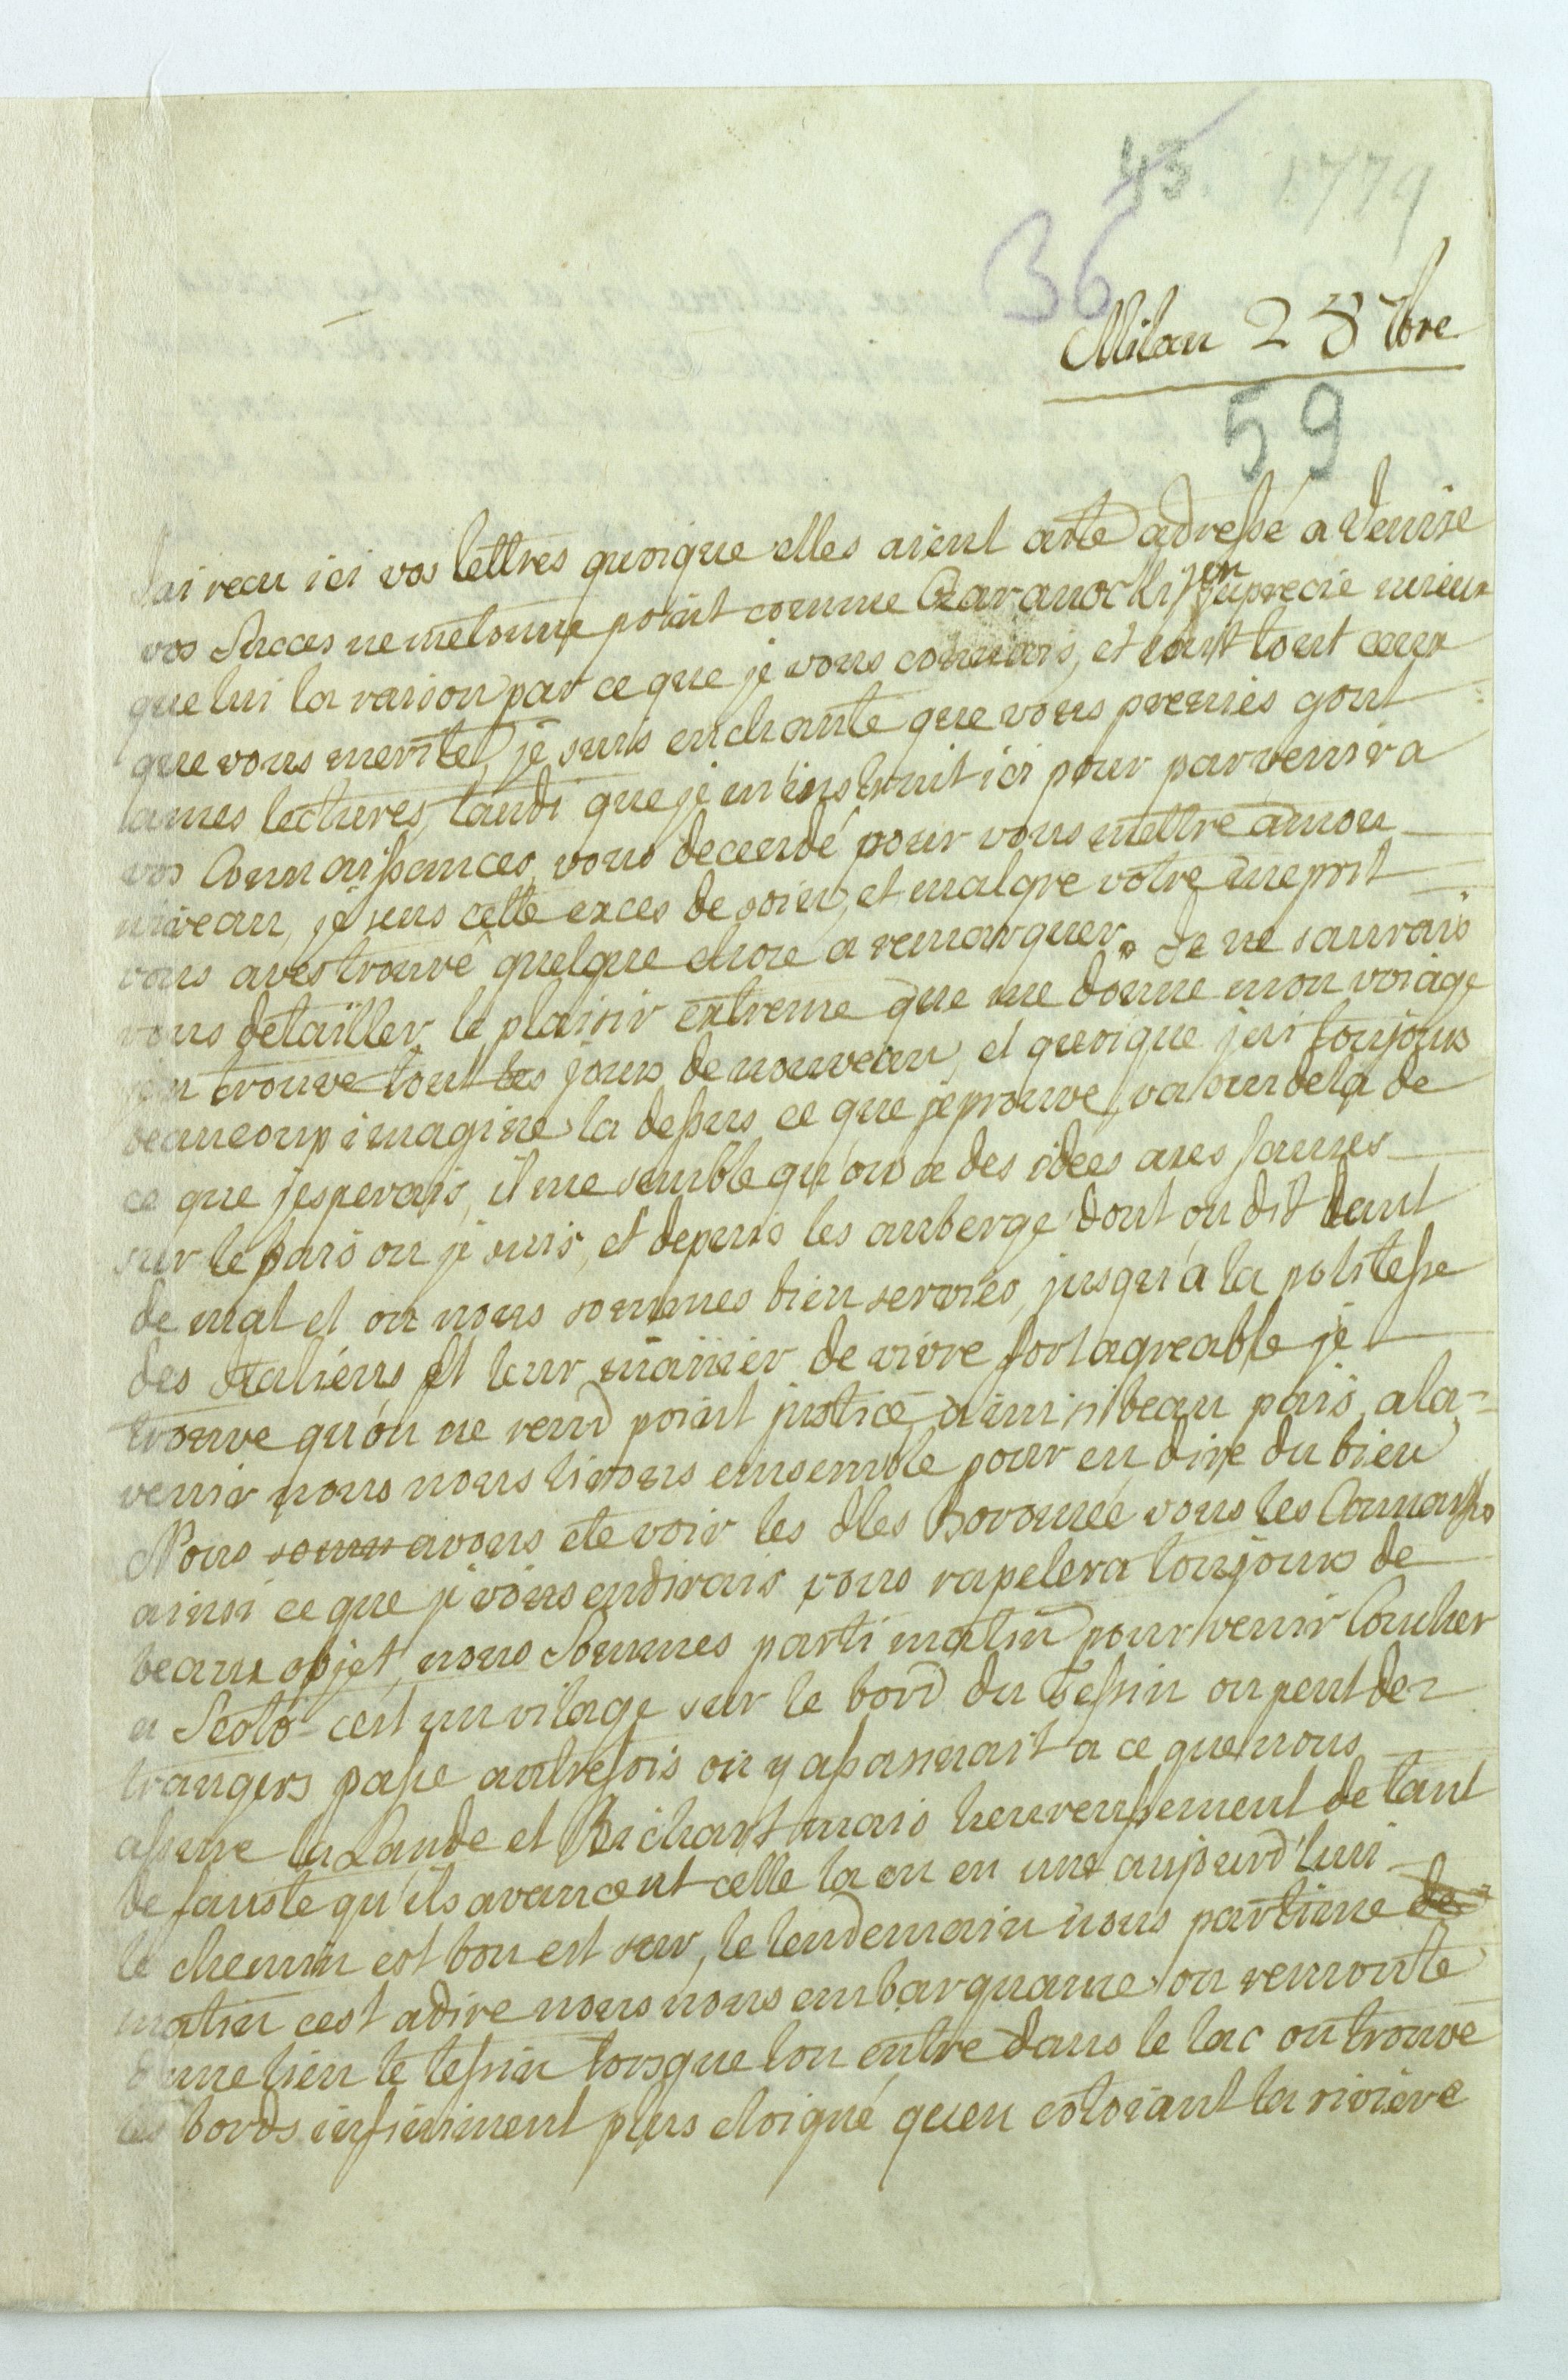 43. 1779
36
Milan 28 7bre
59
J'ai recu ici vos lettres quoique elles aient até adressé a Venise
vos Succes ne metonne point comme Czarnocki j'en aprecie mieux
que lui la raison par ce que je vous connois, et tout ceux
que vous merité, je suis enchanté que vous preniés gout
a mes lectures, tandi que je m'instruit ici pour parvenir a
vos Connaissances, vous decendé pour vous mettre a mon
niveau, je sens cette exces de soin, et malgre votre meprit
vous avés trouvé quelque chose a remarquer. Je ne saurais
vous détailler le plaisir extreme que me donne mon voiage
j'en trouve tout les jours de nouveau, et quoique j'ai toujours
beaucoup imaginé la dessus ce que j'eprouve, va au dela de
ce que j'esperais, il me semble qu'on a des idées ases fausses
sur le pais ou je suis, et depuis les auberge dont on dit tant
de mal et ou nous sommes bien servies, jusqu'a la politesse
des Italiens et leur manier de vivre fort agreable je
trouve qu'on ne rend point justice a un si beau pais, a la
venir nous nous lirons ensemble pour en dire du bien
Nous avons eté voir les Iles Boromée vous les Connaisses
ainsi ce que je vous en dirais vous rapelera toujours de
beaux objet, nous Sommes parti matin pour venir Coucher
a Sesto c'est un vilage sur le bord du Tessin ou peut de
trangers passe autrefois on y assasinait a ce que nous
assure la Lande et Richart mais heureusement de tant
de fausté qu'ils avancent celle la en en une aujourd'hui
le chemin est bon est seur, le lendemain nous partime de
matin cest a dire nous nous embarquame on remonte
une lieu le tessin lorsque lon entre dans le lac on trouve
les bords infiniment plus eloigné quen cotoiant la riviere